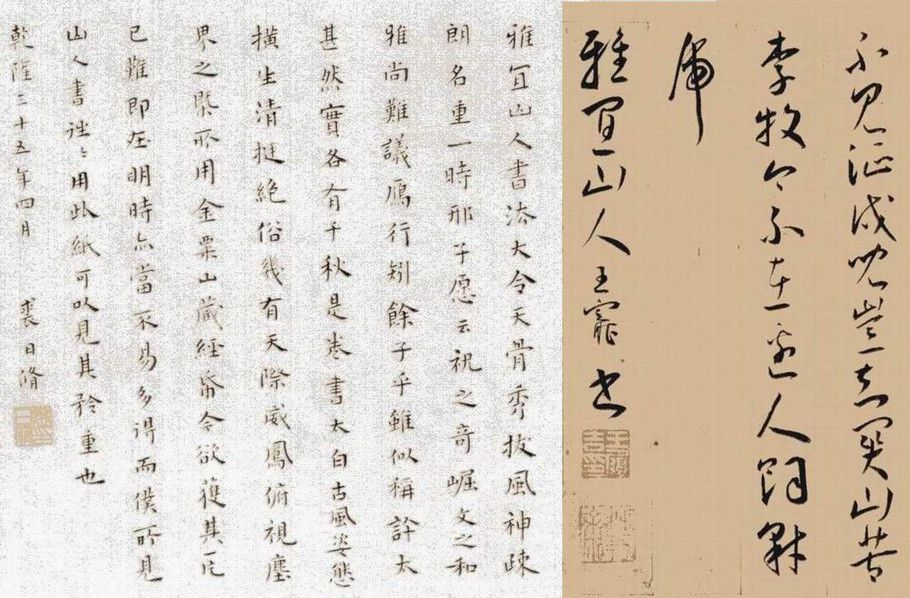 不見征戍兒豈知關山苦
李牧今不在邊人飼豺
虎
雅宜山人王寵書
雅宜山人書法大令天骨秀拔風神疎
朗名重一時邢子愿云祝之奇崛文之和
雅尚難議鴈行矧餘子乎雖似稱許太
甚然實各有千秋是卷書太白古風姿態
橫生清挺絕俗幾有天際威鳳俯視塵
界之槩所用金粟山藏經帋今欲獲其片
已難即在明時亦當不易多得而僕所見
山人書往〻用此紙可以見其矜重也
乾隆三十五年四月 裘日脩